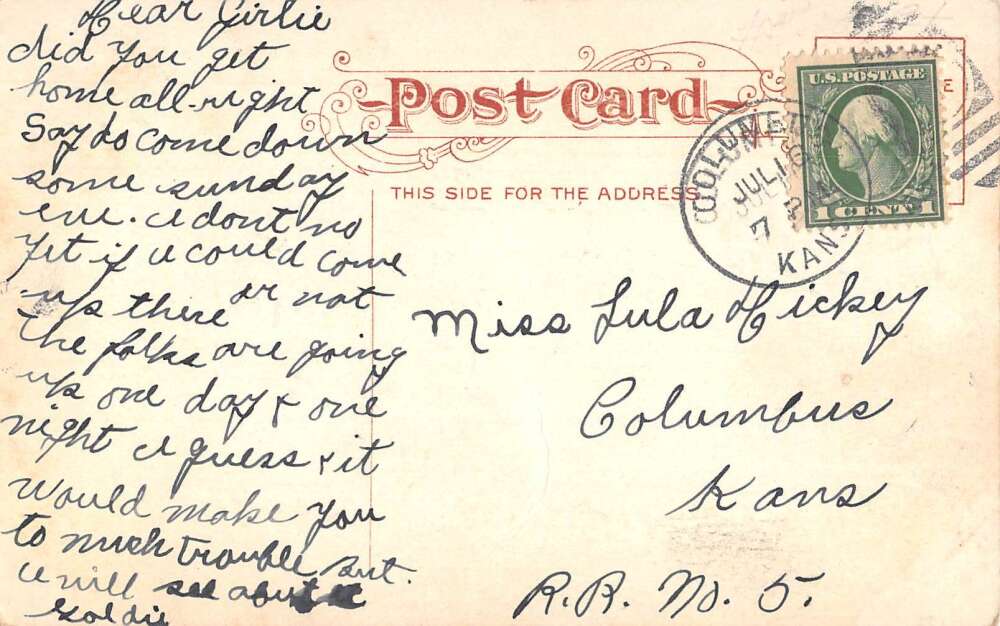 Dear Girlie
did you get
home all-right
Say do come down
some sunday
eve. I dont no
Yet if I could come
up there or not
The folks are going
up one day & one
night I guess & it
would make you
to much trouble But.
I will see about it
Goldie
Post Card
THIS SIDE FOR THE ADDRESS
COLUMBUS
JUL 16
7
KANS
U.S. POSTAGE
1 CENT 1
Miss Lula Hickey
Columbus
Kans
R.R. No. 5.